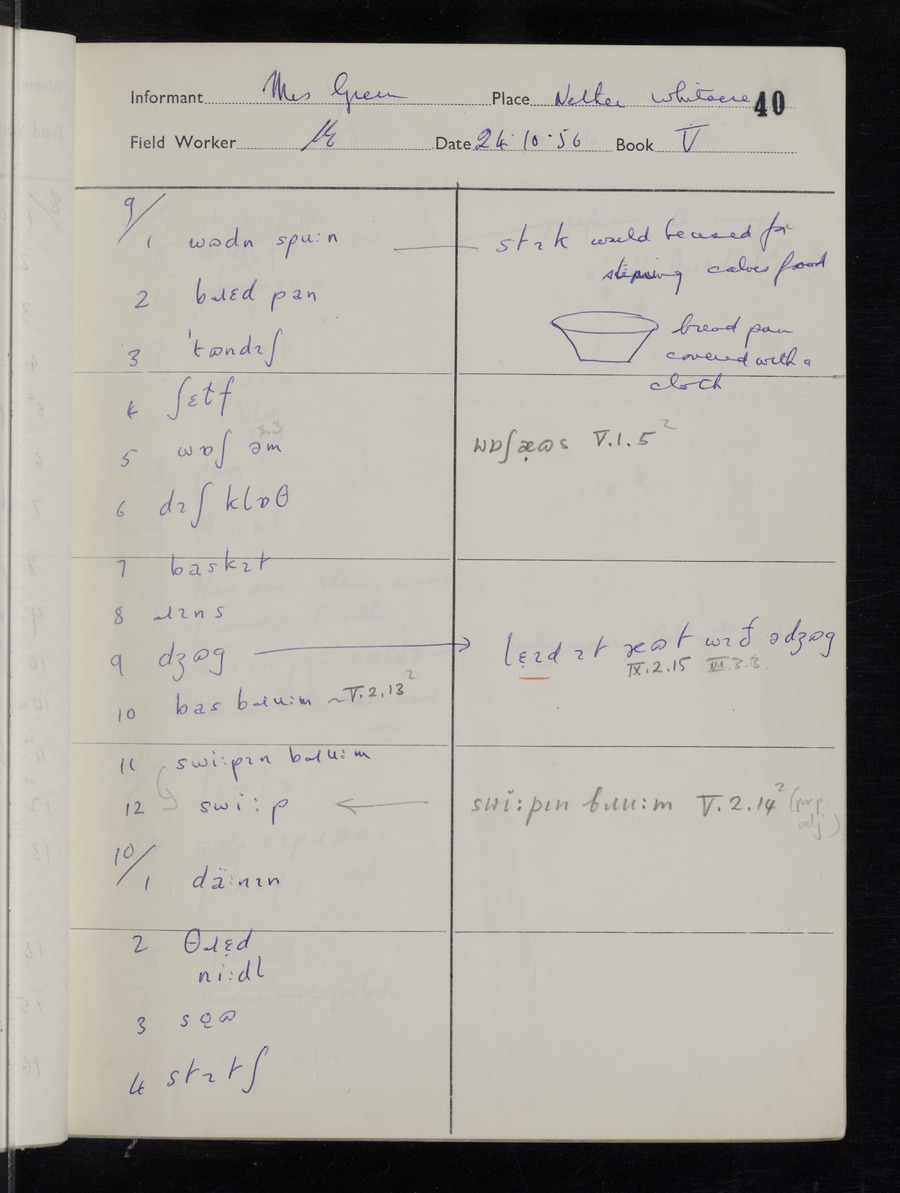 Informant Mrs Green Place Nether Whitacre 40
Field Worker Date 24·10·56 Book V
9/
1 wɷdn spu:n — stɪk would be used for
stirring calves food
2 bɹɛd pan
bread pan
covered with a
cloth
3 ˈtɷndɪʃ
4 ʃɛɫf
5 wɒʃ əm
wɒʃ æɷs V.1.5²
6 dɪʃ klɒθ
7 baskɪt
8 ɹɪns
9 dʒɷg → lɛ̣ɪd ɪt æɷt wɪð ə dʒɷg
IX.2.15 III.3.3.
10 bas bɹu:m ~ V.2.13²
11 swi:pɪn bɹu:m
12 swi:p ← swi:pɪn bɹu:m V.2.14² (prp. adj.)
10/
1 dä:nɪn
2 θɹɛ̣d
ni:dl
3 sọɷ
4 stɪtʃ